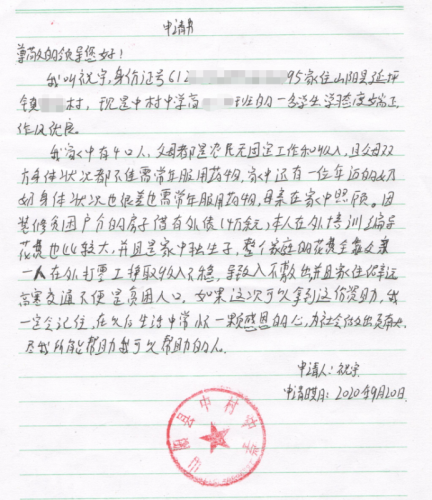 申请书
尊敬的领导您好！
我叫祝宇，身份证号612 95家住山阳县延坪
镇 村，现是中村中学高 班的一名学生学习态度端正
作风优良。
我家中有4口人，父母都是农民无固定工作和收入，且父母双
方身体状况都不佳需常年服用药物，家中还有一位年迈的奶
奶身体状况也很差也需常年服用药物，母亲在家中照顾。因
装修贫困户分的房子借有外债(4万余元)本人在外培训编导
花费也比较大，并且是家中独生子，整个家庭的花费全靠父亲
一人在外打零工获取收入不稳，导致入不敷出并且家住
高寒交通不便是贫困人口。如果这次可以拿到这份资助，我
一定会记住，在以后生活中常怀一颗感恩的心，为社会做出贡献，
尽我所能帮助我可以帮助的人。
申请人：祝宇
申请日期：2020年9月20日
山阳县中村中学